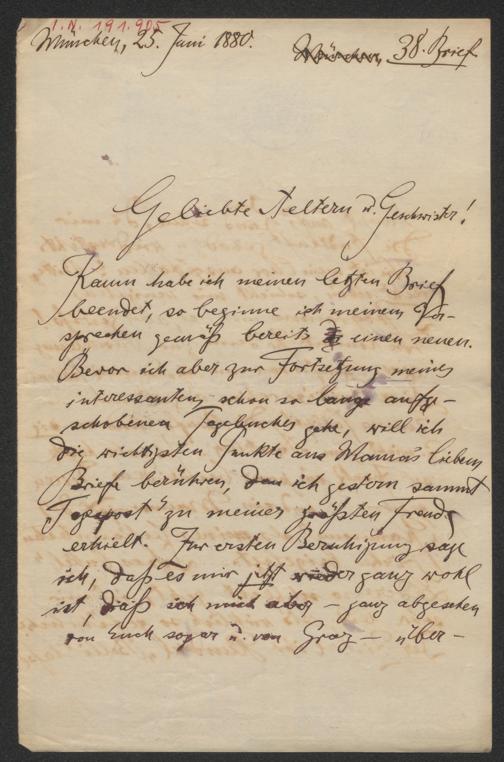 I.N. 191.905
München, 25. Juni 1880.
München, 38. Brief
Geliebte Aeltern u. Geschwister!
Kaum habe ich meinen letzten Brief
beendet, so beginne ich meinem Ver-
sprechen gemäß bereits einen neuen.
Bevor ich aber zur Fortsetzung meines
interessanten, schon so lange aufge-
schobenen Tagebuches gehe, will ich
die wichtigsten Punkte aus Mama's liebem
Briefe berühren, den ich gestern sammt
„Tagespost" zu meiner größten Freude
erhielt. Zur ersten Beruhigung sage
ich, daß es mir jetzt wieder ganz wohl
ist, daß ich mich aber – ganz abgesehen
von Euch sogar u. von Graz – über-